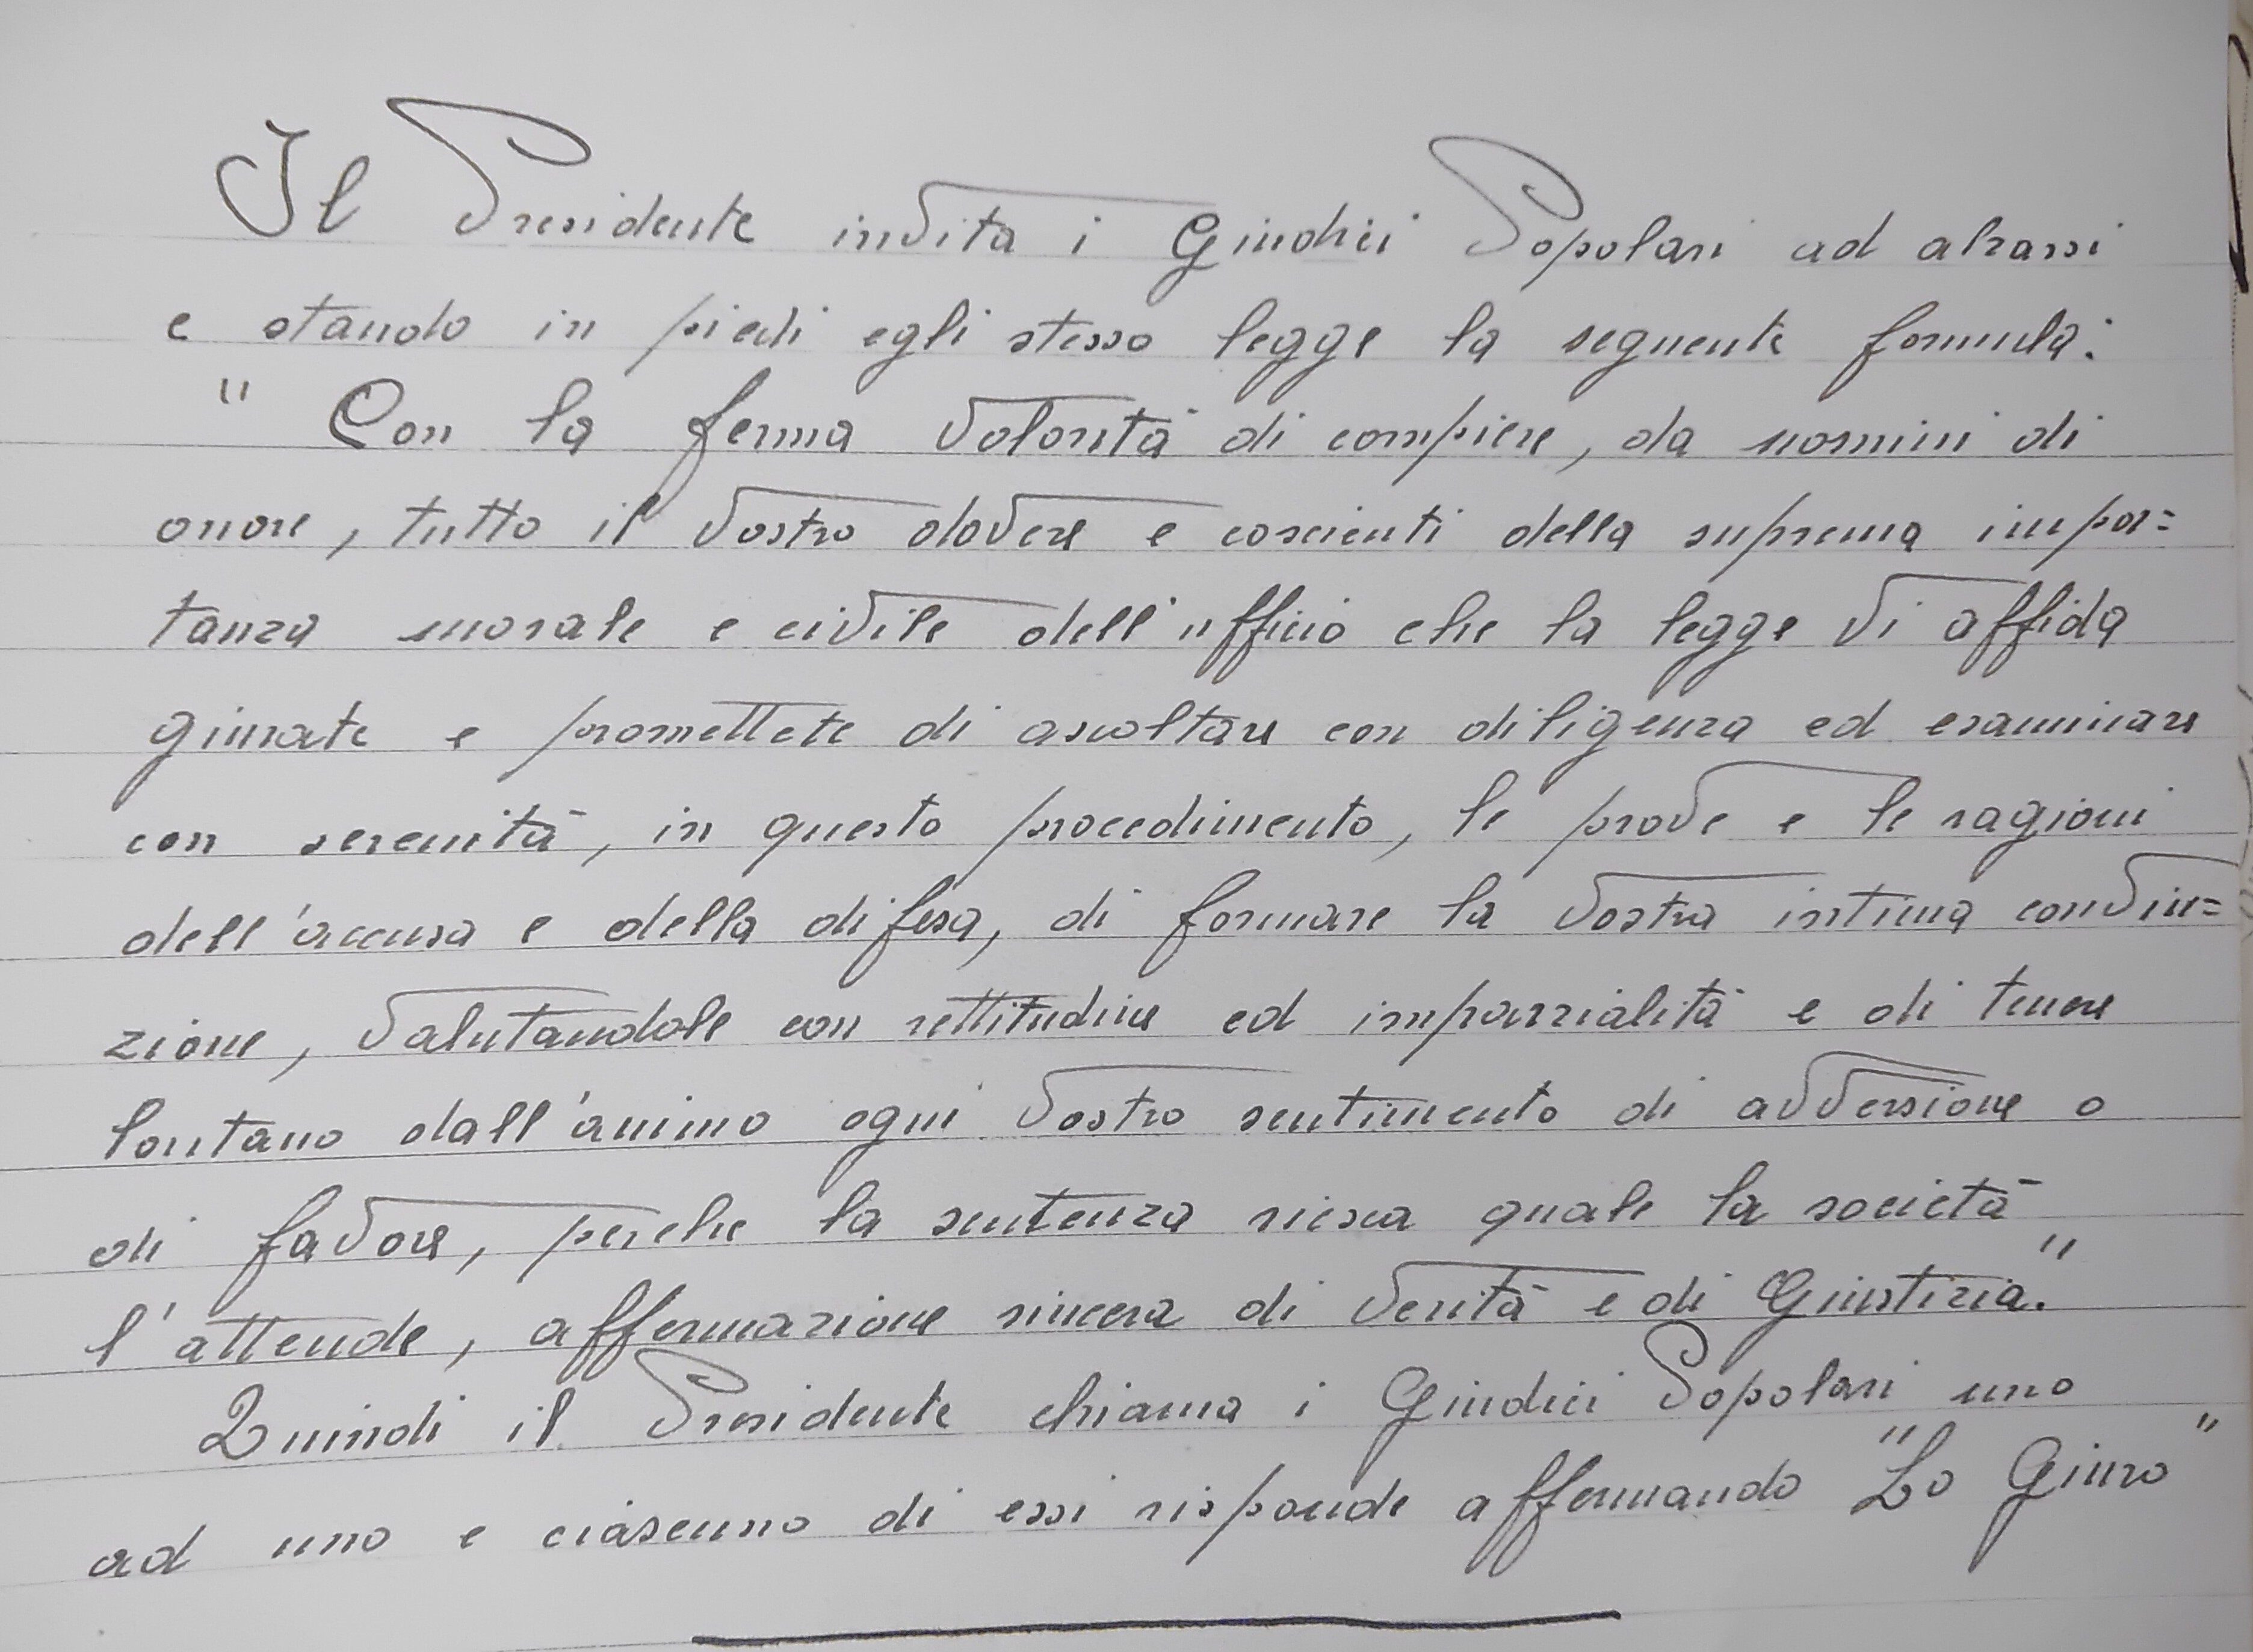 Il Presidente invita i Giudici Popolari ad alzarsi
e stando in piedi egli stesso legge la seguente formula:
" Con la ferma volontà di compiere, da uomini di
onore, tutto il vostro dovere e coscienti della suprema impor=
tanza morale e civile dell'ufficio che la legge vi affida
giurate e promettete di ascoltare con diligenza ed esaminare
con serenità, in questo procedimento, le prove e le ragioni
dell'accusa e della difesa, di formare la vostra intima convin=
zione, valutandole con rettitudine ed imparzialità e di tenere
lontano dall'animo ogni vostro sentimento di avversione o
di favore, perche la sentenza riesca quale la società
l'attende, affermazione sincera di verità e di Giustizia."
Quindi il Presidente chiama i Giudici Popolari uno
ad uno e ciascuno di essi risponde affermando "Lo Giuro"